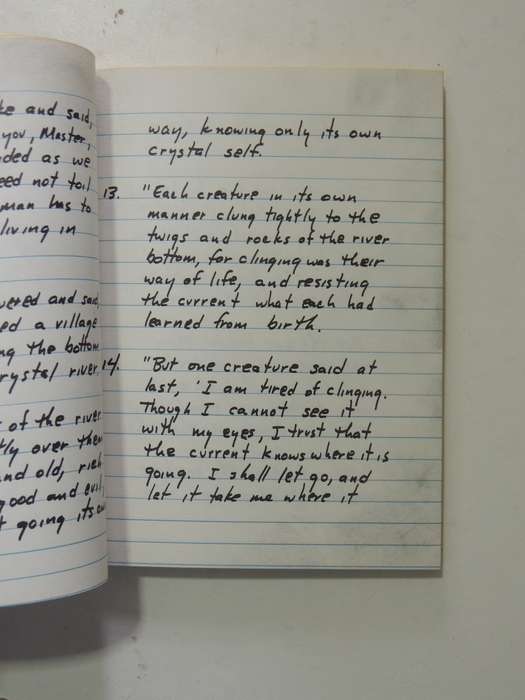 ke and said,
you, Master,
ded as we
eed not toil
man has to
living in
wered and said,
ed a village
ng the bottom
rystal river.
t of the river
tly over them
and old, rich
good and evil,
t going its own
way, knowing only its own
crystal self.
13. "Each creature in its own
manner clung tightly to the
twigs and rocks of the river
bottom, for clinging was their
way of life, and resisting
the current what each had
learned from birth.
14. "But one creature said at
last, 'I am tired of clinging.
Though I cannot see it
with my eyes, I trust that
the current knows where it is
going. I shall let go, and
let it take me where it